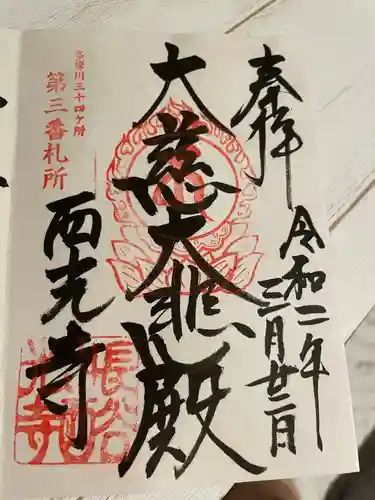 奉拝
令和二年
三月廿二日
大慈大悲殿
多摩川三十四ヶ所
第三番札所
西光寺